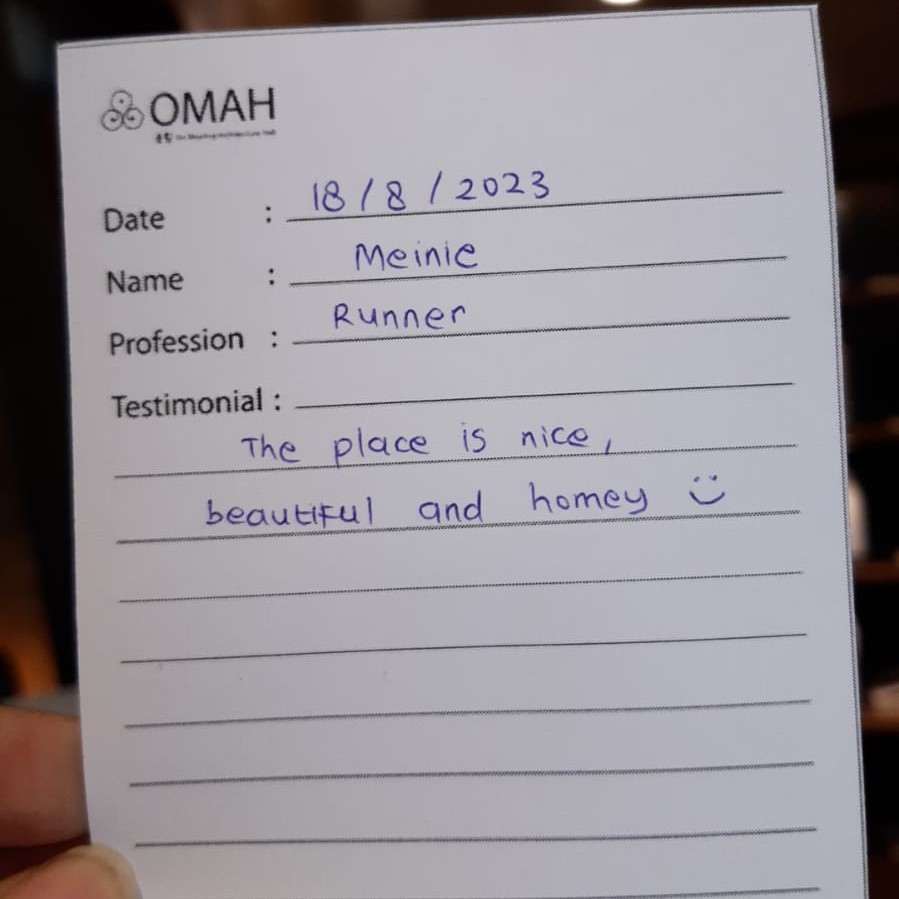 OMAH
Date : 18 / 8 / 2023
Name : Meinie
Profession : Runner
Testimonial :
The place is nice,
beautiful and homey :)